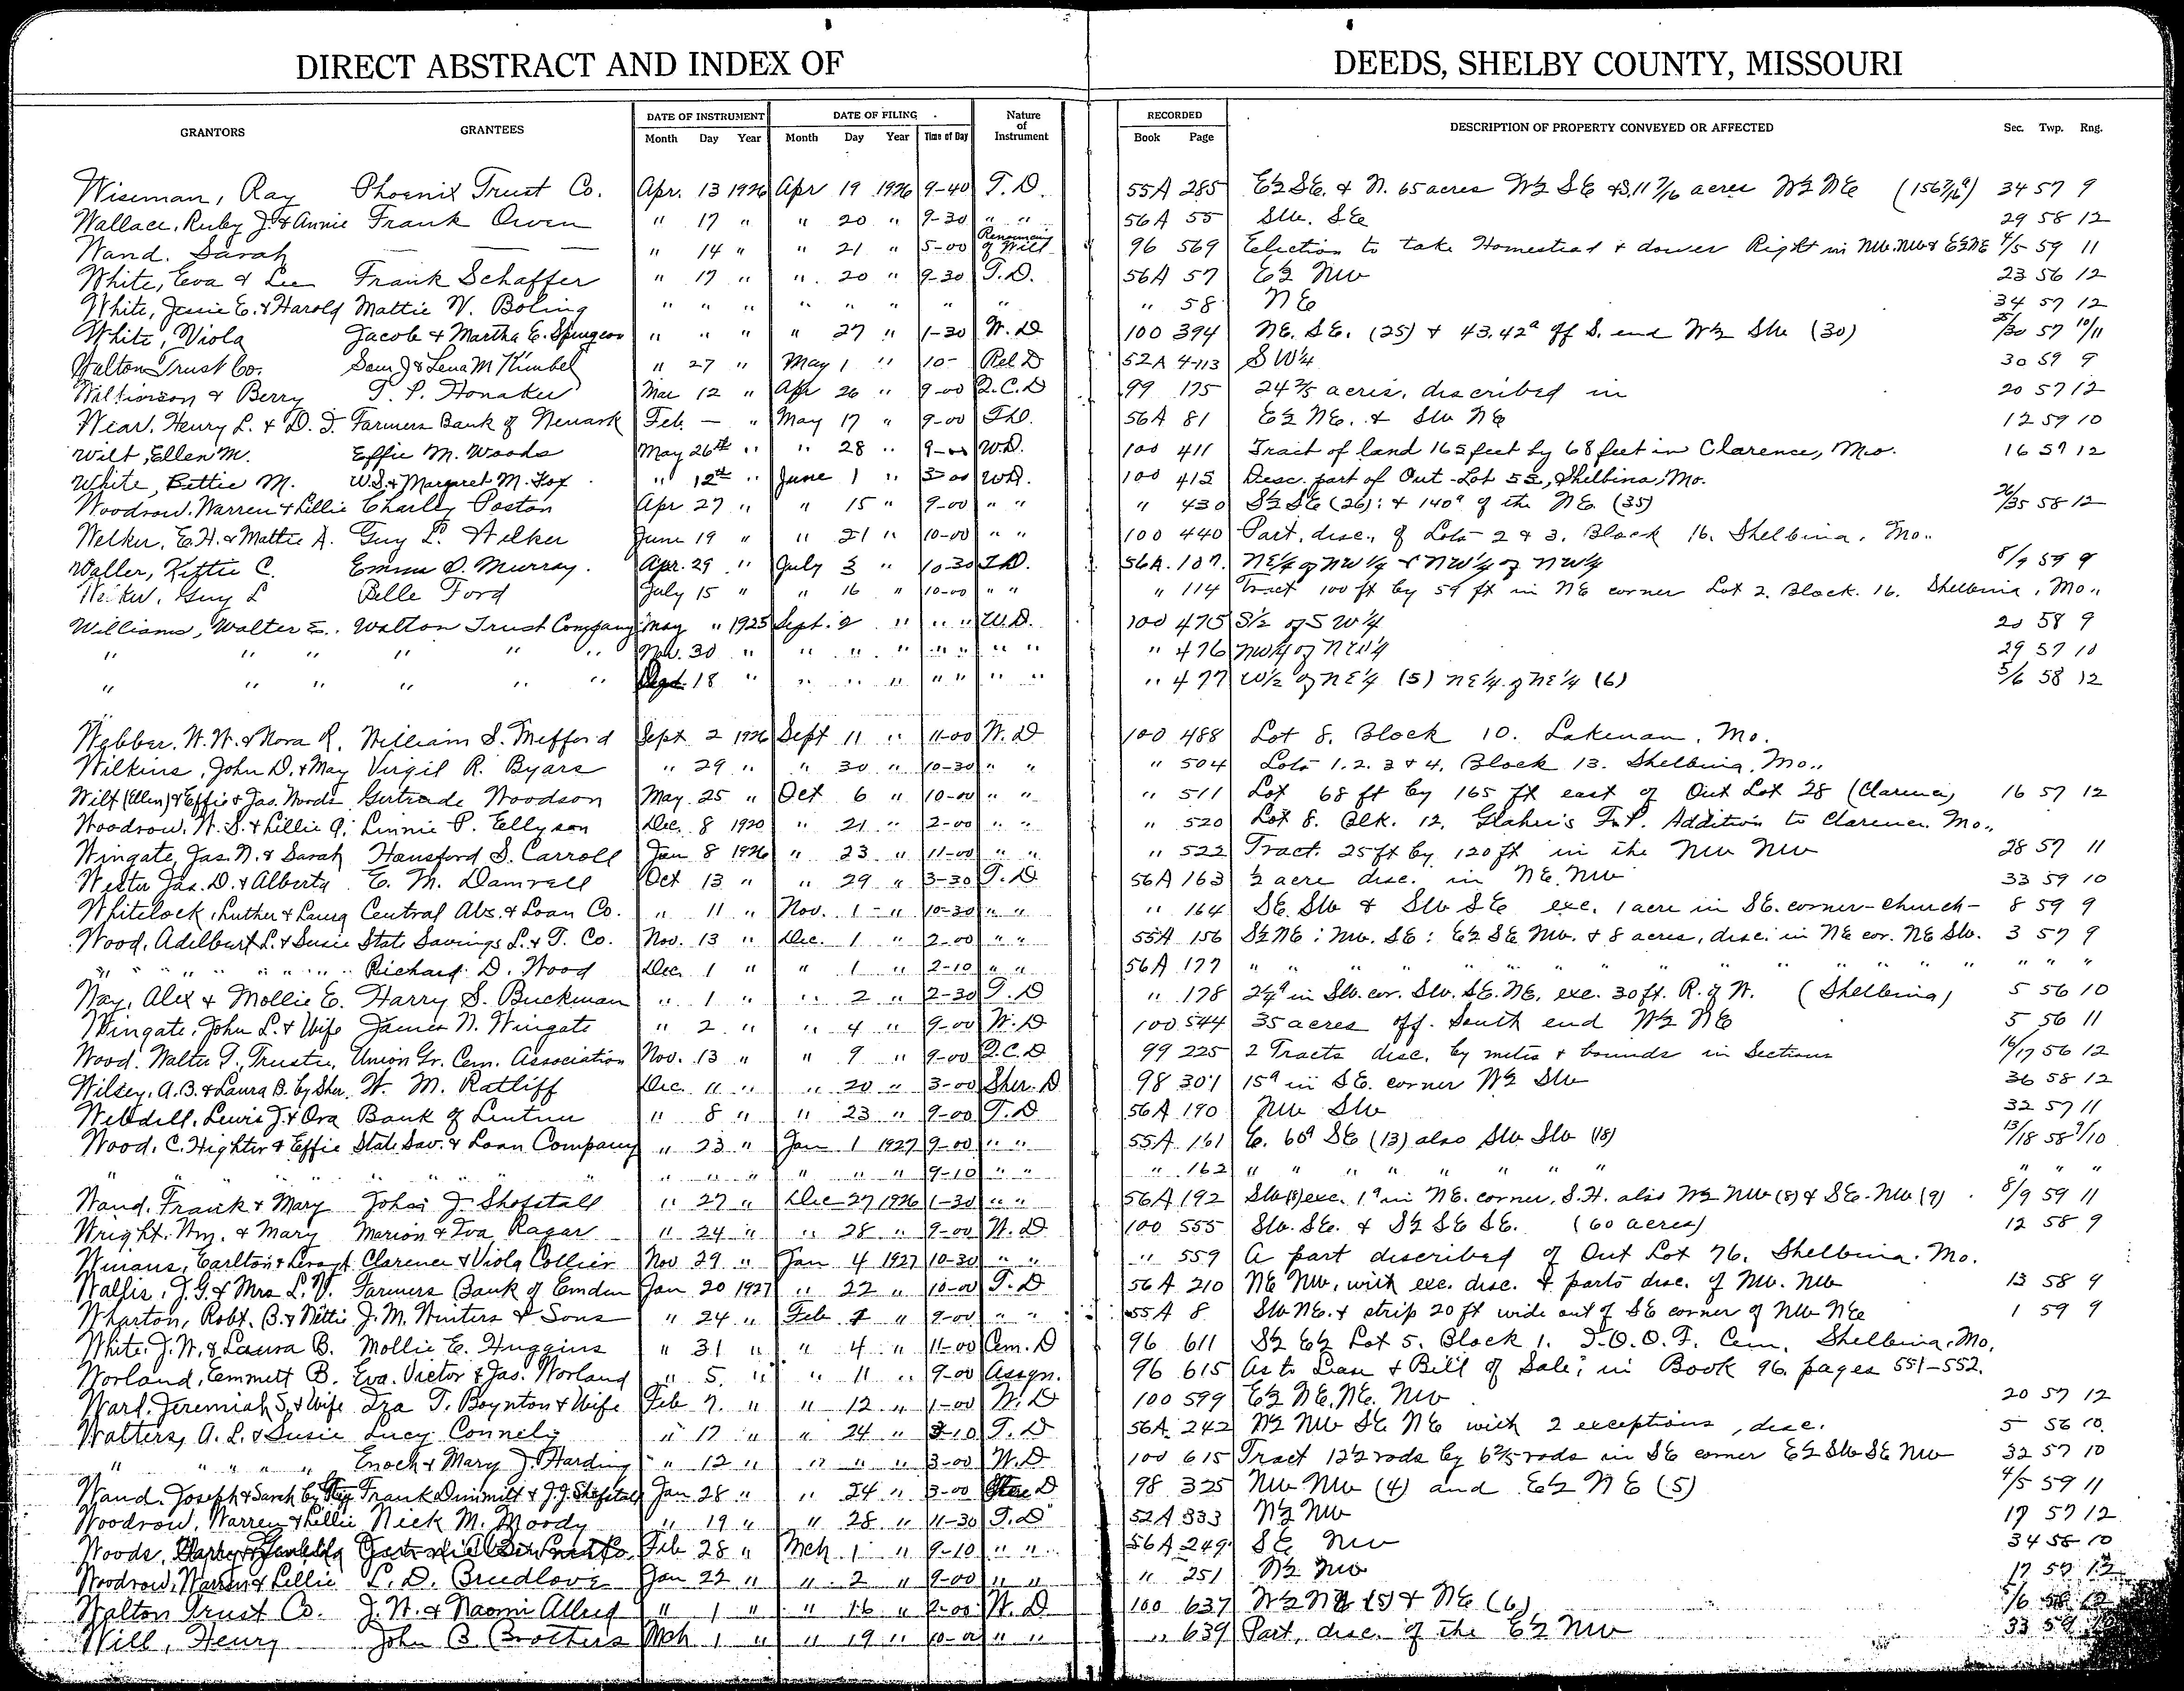 DIRECT ABSTRACT AND INDEX OF DEEDS, SHELBY COUNTY, MISSOURI
GRANTORS GRANTEES DATE OF INSTRUMENT DATE OF FILING Nature of Instrument RECORDED DESCRIPTION OF PROPERTY CONVEYED OR AFFECTED Sec. Twp. Rng.
Month Day Year Month Day Year Time of Day Book Page
Wiseman, Ray Phoenix Trust Co. Apr. 13 1926 Apr 19 1926 9-40 T.D. 55A 285 E½ SE. & N. 65 acres W½ SE & S. 11 7/16 acres W½ NE (156 7/16 a) 34 57 9
Wallace, Ruby J. & Annie Frank Owen " 17 " " 20 " 9-30 " " 56A 55 SW. SE 29 58 12
Wand. Sarah — — — " 14 " " 21 " 5-00 Renouncing of Will 96 569 Election to take Homestead & dower Right in NW. NW & E½ NE 4/5 59 11
White, Eva & Lee Frank Schaffer " 17 " " 20 " 9-30 T.D. 56A 57 E½ NW 23 56 12
White, Jessie E. & Harold Mattie V. Boling " " " " " " " " 58 NE 34 57 12
White, Viola Jacob & Martha E. Spurgeon " " " " 27 " 1-30 W.D 100 394 NE. SE. (25) & 43.42ª off S. end W½ SW (30) 25/30 57 10/11
Walton Trust Co. Sam J & Lena M Kimbel " 27 " May 1 " 10- Rel D 52A 4-113 SW¼ 30 59 9
Wilkinson & Berry T. P. Honaker Mar 12 " Apr 26 " 9-00 Q.C.D 99 175 24 2/5 acres, discribed in 20 57 12
Wear. Henry L. & D. I. Farmers Bank of Newark Feb. — " May 17 " 9-00 T.D. 56A 81 E½ NE. & SW NE 12 59 10
Wilt, Ellen M. Effie M. Woods May 26th " " 28 " 9-00 W.D. 100 411 Tract of land 165 feet by 68 feet in Clarence, Mo. 16 57 12
White, Bettie M. W.S. & Margaret M. Fox " 12th " June 1 " 3-00 W.D. 100 415 Desc. part of Out-Lot 55, Shelbina, Mo.
Woodrow. Warren & Lillie Charley Poston Apr 27 " " 15 " 9-00 " " " 430 S½ SE (26): & 140ª of the NE. (35) 26/35 58 12
Welker, E.H. & Mattie A. Guy L. Wilker June 19 " " 21 " 10-00 " " 100 440 Part, desc., of Lots 2 & 3. Block 16. Shelbina, Mo..
Waller, Kittie C. Emma D. Murray. Apr. 29 " July 3 " 10-30 T.D. 56A. 107. NE¼ of NW¼ & NW¼ of NW¼ 8/9 59 9
Welker, Guy L Belle Ford July 15 " " 16 " 10-00 " " " 114 Tract 100 ft by 59 ft in NE corner Lot 2. Block. 16. Shelbina, Mo..
Williams, Walter E.. Walton Trust Company May " 1925 Sept. 2 " " " W.D. 100 475 S½ of SW¼ 20 58 9
" " " " " " Nov. 30 " " " " " " " " " 476 NW¼ of NW¼ 29 57 10
" " " " " " Sept. 18 " " " " " " " " " 477 W½ of NE¼ (5) NE¼ of NE¼ (6) 5/6 58 12
Webber. W. W. & Nora R. William S. Mefford Sept 2 1926 Sept 11 " 11-00 W.D 100 488 Lot 8. Block 10. Lakenan, Mo.
Wilkins, John D. & May Virgil R. Byars " 29 " " 30 " 10-30 " " " 504 Lots 1. 2. 3 & 4. Block 13. Shelbina, Mo..
Wilt (Ellen) & Effie & Jas. Woods Gertrude Woodson May 25 " Oct 6 " 10-00 " " " 511 Lot 68 ft by 165 ft east of Out Lot 28 (Clarence) 16 57 12
Woodrow, W. S. & Lillie A. Linnie P. Ellyson Dec. 8 1920 " 21 " 2-00 " " " 520 Lot 8. Blk. 12. F.P. Addition to Clarence. Mo..
Wingate, Jas. N. & Sarah Hansford S. Carroll Jan 8 1926 " 23 " 11-00 " " " 522 Tract. 25 ft by 120 ft in the NW NW 28 57 11
Wester Jas. D. & Alberta E. M. Damrell Oct 13 " " 29 " 3-30 T.D 56A 163 ½ acre desc. in NE. NW 33 59 10
Whitelock, Luther & Laura Central Abs. & Loan Co. " 11 " Nov. 1 " 10-30 " " " 164 SE SW & SW SE exc. 1 acre in SE. corner-church- 8 59 9
Wood, Adelbert L. & Susie State Savings L. & T. Co. Nov. 13 " Dec. 1 " 2-00 " " 55A 156 S½ NE: NW. SE: E½ SE NW. & 8 acres, desc. in NE cor. NE SW. 3 57 9
" " " " " " " Richard D. Wood Dec. 1 " " 1 " 2-10 " " 56A 177 " " " " " " " " " " " " "
Way, Alex & Mollie E. Harry S. Buckman " 1 " " 2 " 2-30 T.D " 178 2¼ª in SW. cor. SW. SE. NE. exc. 30 ft. R. of W. (Shelbina) 5 56 10
Wingate, John L. & Wife James N. Wingate " 2 " " 4 " 9-00 W.D 100 544 35 acres off. South end W½ NE 5 56 11
Wood. Walter P., Trustee, Union Gr. Cem. Association Nov. 13 " " 9 " 9-00 Q.C.D 99 225 2 Tracts desc. by metes & bounds in Sections 16/17 56 12
Wilsey, A.B. & Laura B. by Sher. W. M. Ratliff Dec. 11 " " 20 " 3-00 Sher. D 98 301 15ª in SE. corner W½ SW 36 58 12
Webdell, Lewis J. & Ora Bank of Lentner " 8 " " 23 " 9-00 T.D 56A 190 NW SW 32 57 11
Wood, C. Highter & Effie State Sav. & Loan Company " 23 " Jan 1 1927 9-00 " " 55A 161 E. 60ª SE (13) also SW SW (18) 13/18 58 9/10
" " " " " " " " " " " " 9-10 " " " 162 " " " " " " " " " " "
Wand. Frank & Mary John J. Shofstall " 27 " Dec 27 1926 1-30 " " 56A 192 SW (8) exc. 1ª in NE. corner, S.H. also W½ NW (8) & SE-NW (9) 8/9 59 11
Wright. Wm. & Mary Marion & Iva Ragar " 24 " " 28 " 9-00 W.D 100 555 SW. SE. & S½ SE SE. (60 acres) 12 58 9
Winans, Earlton & Clarence & Viola Collier Nov 29 " Jan 4 1927 10-30 " " " 559 A part described of Out Lot 76. Shelbina. Mo.
Wallis, J.G. & Mrs L.V. Farmers Bank of Emden Jan 20 1927 " 22 " 10-00 T.D 56A 210 NE NW, with exc. desc. & parts desc. of NW. NW 13 58 9
Wharton, Robt. B. & Nettie J. M. Winters & Sons " 24 " Feb 1 " 9-00 " " 55A 8 SW NE. & strip 20 ft wide out of SE corner of NW NE 1 59 9
White. J. W. & Laura B. Mollie E. Huggins " 31 " " 4 " 11-00 Cem. D 96 611 S½ E½ Lot 5. Block 1. I.O.O.F. Cem. Shelbina, Mo.
Worland, Emmett B. Eva. Victor & Jas. Worland " 5. " " 11 " 9-00 Assgn. 96 615 As to Lease & Bill of Sale, in Book 96. pages 551-552.
Ward. Jeremiah S. & Wife Ira T. Boynton & Wife Feb 7. " " 12 " 1-00 W.D 100 599 E½ NE. NE. NW 20 57 12
Walters, A. L. & Susie Lucy Connely " 17 " " 24 " 3-10 T.D 56A 242 W½ NW SE NE with 2 exceptions, desc. 5 56 10.
" " " " " Enoch & Mary J. Harding " 12 " " " " 3-00 W.D 100 615 Tract 12½ rods by 6 2/5 rods in SE corner E½ SW SE NW 32 57 10
Wand. Joseph & Sarah by Frank Dimmitt & J.J. Shofstall Jan 28 " " 24 " 3-00 D 98 325 NW NW (4) and E½ NE (5) 4/5 59 11
Woodrow, Warren & Lillie Nick M. Moody " 19 " " 28 " 11-30 T.D 52A 333 W½ NW 17 57 12
Woods, Feb 28 " Mch 1 " 9-10 " " 56A 249 SE NW 34 58 10
Woodrow, Warren & Lillie L. D. Breedlove Jan 22 " " 2 " 9-00 " " " 251 W½ NW 17 57 12
Walton Trust Co. J. W. & Naomi Allred " 1 " " 16 " 2-00 W.D 100 637 W½ NE (5) & NE (6) 5/6 58 12
Will, Henry John B Brothers Mch 1 " " 19 " 10-00 " " " 639 Part, desc. of the E½ NW 33 59